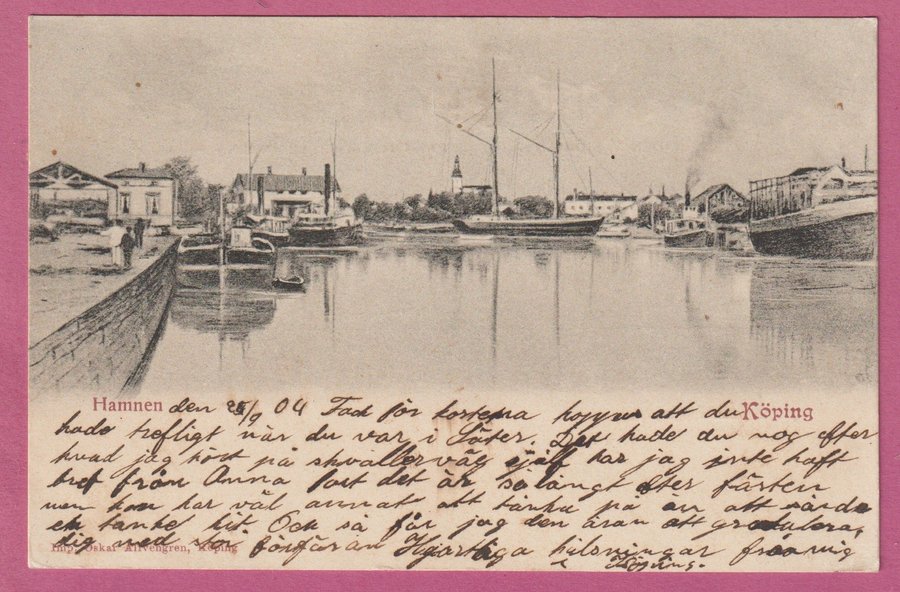 Hamnen den 25/9 04 Tack för korten hoppas att du Köping
hade trefligt när du var i Säter. Det hade du nog efter
hvad jag hört på skvallerväg själf har jag inte haft
bref från Anna fast det är så långt efter färden
men hon har väl annat att tänka på än att sända
en tanke hit. Och så får jag den äran att gratulera
dig med stor Hjärtliga hälsningar från mig
Imp. Oskar Köping